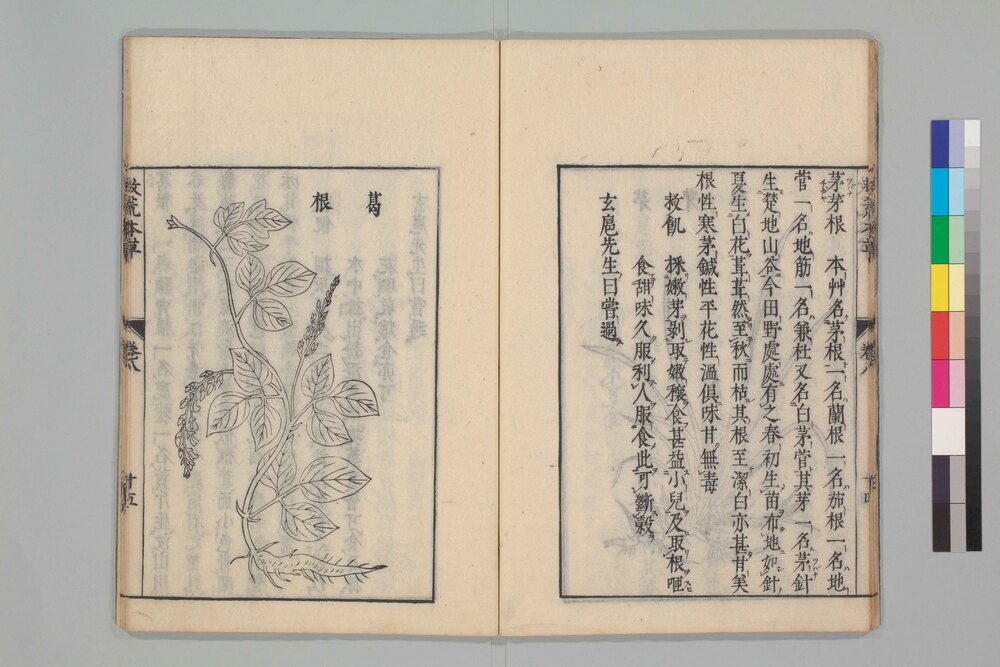 茅芽根 本艸名茅根一名蘭根一名茹根一名地
菅一名地筋一名兼杜又名白茅菅其芽一名茅針
生楚地山谷今田野處處有之春初生苗布地如針
夏生白花茸茸然至秋而枯其根至潔白亦甚甘美
根性寒茅鍼性平花性溫俱味甘無毒
救飢 採嫩芽剥取嫩穰食甚益小兒及取根咂
食甜味久服利人服食此可斷穀
玄扈先生曰嘗過
卷八
葛
根
救荒本草
卷八
廿五